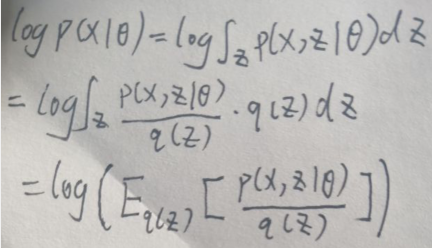 log p(x|θ) = log ∫_z p(x,z|θ) dz
= log ∫_z p(x,z|θ) / q(z) · q(z) dz
= log ( E_{q(z)} [ p(x,z|θ) / q(z) ] )